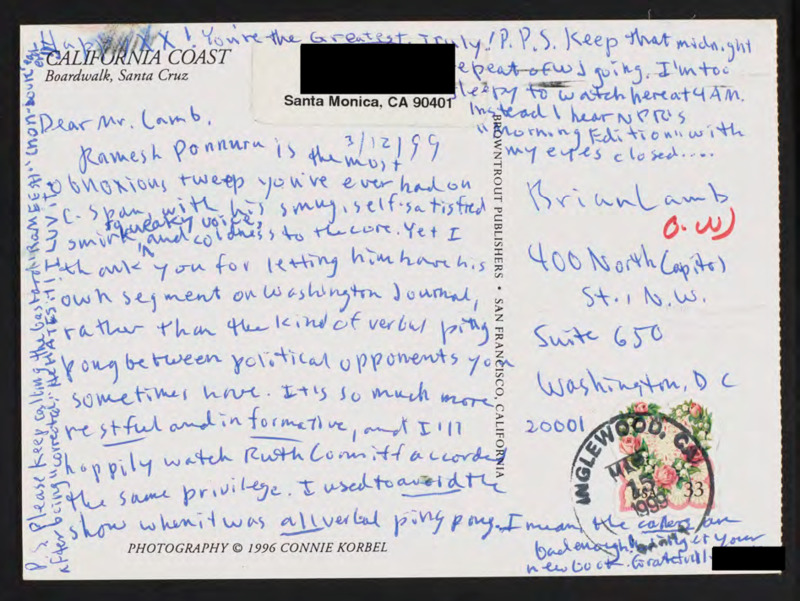 Happy XX! You're the Greatest. Truly! P.P.S. Keep that midnight
repeat of WJ going. I'm too
sleepy to watch here at 4 AM.
Instead I hear NPR's
"Morning Edition" with
my eyes closed....
CALIFORNIA COAST
Boardwalk, Santa Cruz
Santa Monica, CA 90401
3/12/99
Dear Mr. Lamb.
Ramesh Ponnuru is the most
obnoxious tweep you've ever had on
C-Span, with his smug, self-satisfied
smirk squeaky voice, and coldness to the core. Yet I
thank you for letting him have his
own segment on Washington Journal,
rather than the kind of verbal ping
pong between political opponents you
sometimes have. It is so much more
restful and informative, and I'll
happily watch Ruth Coniff accorded
the same privilege. I used to avoid the
show when it was all verbal ping pong. I mean the callers are
bad enough!
new book. Gratefully
P.S. Please keep calling the bastard: RAMEESH!
after being corrected. HE HATES IT! I LUV IT!
BROWNTROUT PUBLISHERS • SAN FRANCISCO, CALIFORNIA
Brian Lamb
O.WJ
400 North Capitol
St., N.W.
Suite 650
Washington, DC
20001
INGLEWOOD, CA
15
1999
USA
33
PHOTOGRAPHY © 1996 CONNIE KORBEL